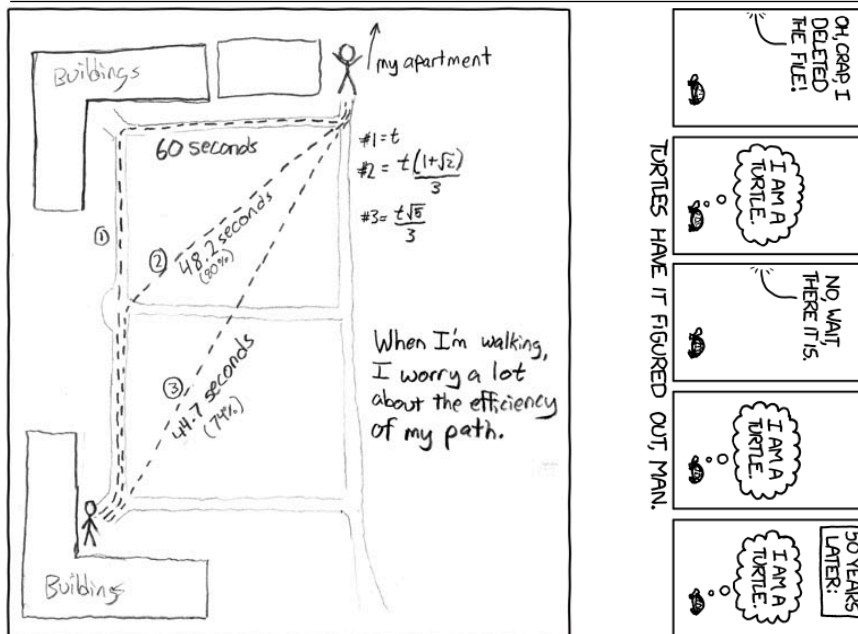 Buildings
my apartment
60 seconds
#1 = t
#2 = t(1+√2)
3
#3 = t√5
3
①
②
48.2 seconds
(80%)
③
44.7 seconds
(74%)
When I'm walking,
I worry a lot
about the efficiency
of my path.
Buildings
OH, CRAP, I
DELETED
THE FILE!
I AM A
TURTLE.
NO, WAIT,
THERE IT IS.
I AM A
TURTLE.
50 YEARS
LATER:
I AM A
TURTLE.
TURTLES HAVE IT FIGURED OUT, MAN.